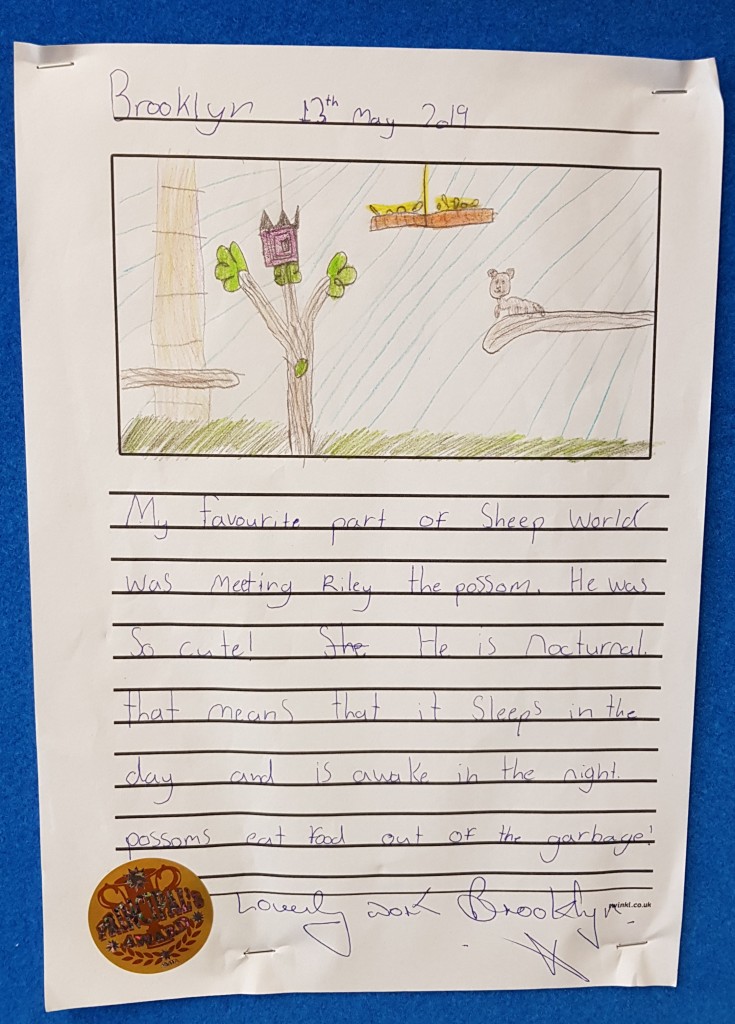 Brooklyn 13th May 2019
My favourite part of Sheep World
was meeting Riley the possom. He was
So cute! She He is nocturnal.
that means that it sleeps in the
day and is awake in the night.
possoms eat food out of the garbage!
Lovely work Brooklyn.
twinkl.co.uk
PRINCIPAL'S
AWARD